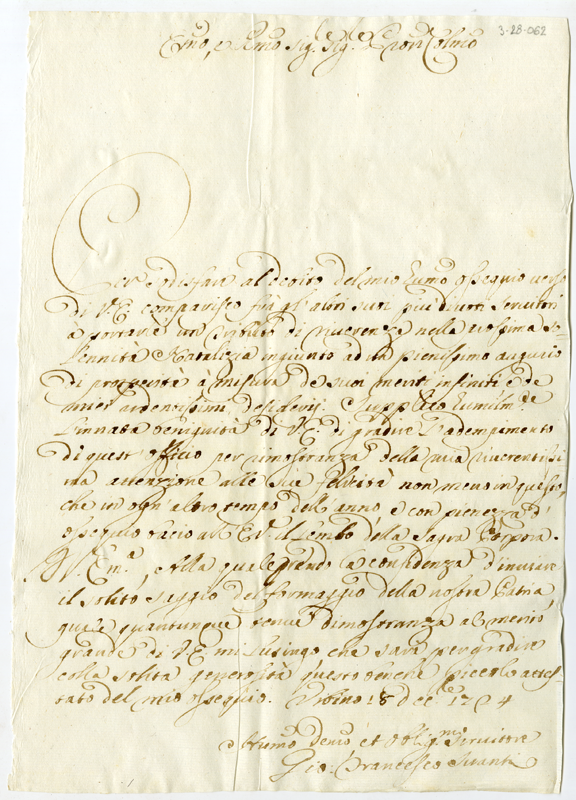 3-28-062
Emo, e Rmo Sig. Sig. e Pron Colmo
Per sodisfare al debito del mio humo ossequio verso
di V.E. comparisco fra gl'altri suoi più divoti servitori
a portarle un tributo di riverenza nella prossima So-
lennità Natalizia congiunto ad un pienissimo augurio
di prosperità a misura de suoi meriti infiniti e de
miei ardentissimi desiderij. Supplico humilm.te
l'innata benignità di V.E. di gradire l'adempimento
di quest'officio per dimostranza della mia riverentissi
ma attenzione alle sue felicità non meno in questo,
che in ogn'altro tempo dell'anno e con pienezza d'
ossequio bacio all' E.V. il lembo della Sagra Porpora.
V. Em.a, Alla quale prendo la confidenza d'inviare
il solito saggio del formaggio della nostra Patria
qual quantunque tenue dimostranza al merito
grande di V.E. mi lusingo che sarà per gradire
colla solita generosità questo benche piccolo attes-
tato del mio ossequio. Urbino 18 dec.e 1724
Humo devmo et obblig.mo Servitore
Gio. Francesco